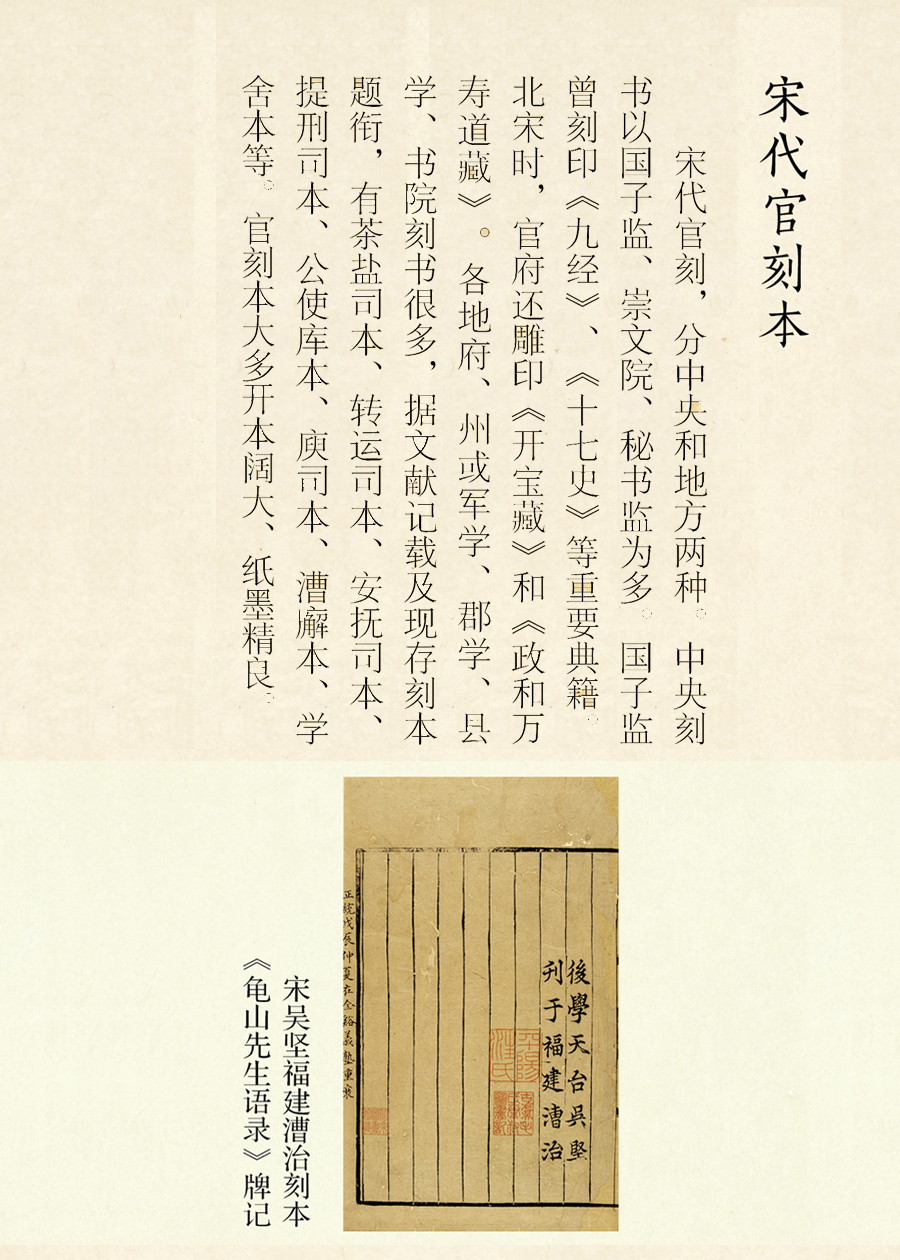 宋代官刻本
宋代官刻，分中央和地方两种。中央刻
书以国子监、崇文院、秘书监为多。国子监
曾刻印《九经》、《十七史》等重要典籍。
北宋时，官府还雕印《开宝藏》和《政和万
寿道藏》。各地府、州或军学、郡学、县
学、书院刻书很多，据文献记载及现存刻本
题衔，有茶盐司本、转运司本、安抚司本、
提刑司本、公使库本、庾司本、漕廨本、学
舍本等。官刻本大多开本阔大、纸墨精良。
後學天台吳堅
刊于福建漕治
平陽
汪氏
正統戊辰仲夏在金谿義塾重裝
宋吴坚福建漕治刻本
《龟山先生语录》牌记